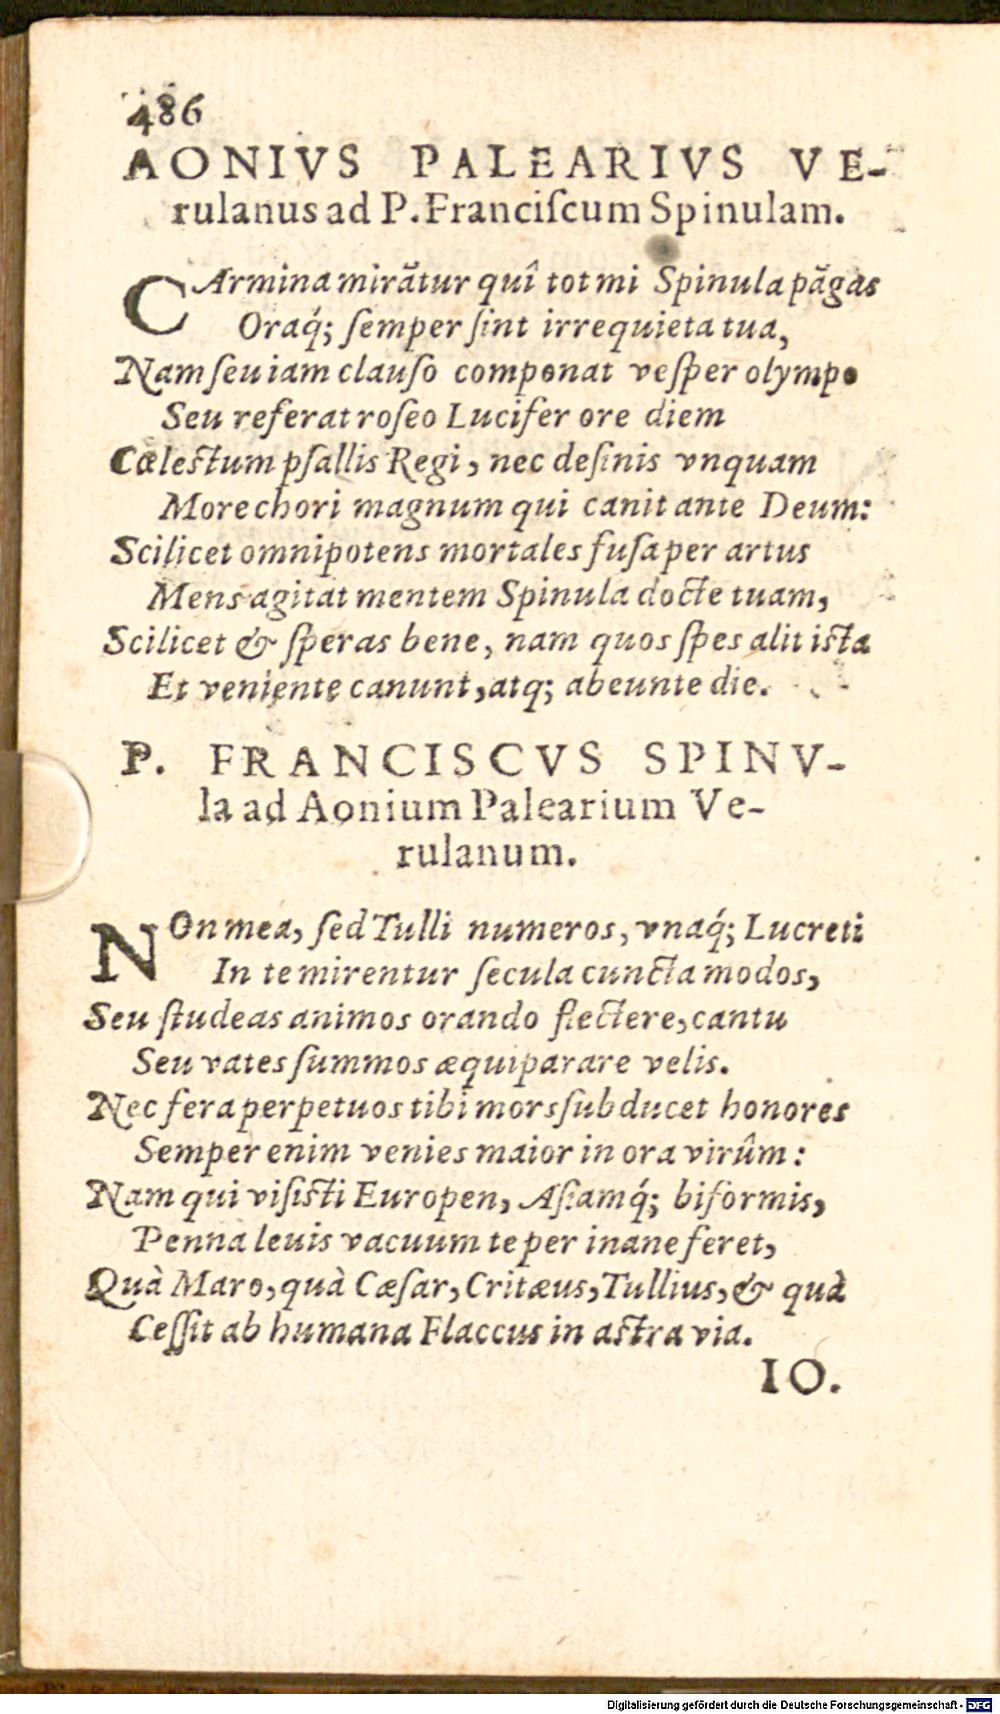 486
AONIVS PALEARIVS VE-
rulanus ad P. Franciſcum Spinulam.
CArmina mirãtur quî tot mi Spinula pãgas
Oraq́; ſemper ſint irrequieta tua,
Nam ſeu iam clauſo componat veſper olympo
Seu referat roſeo Lucifer ore diem
Cœleſtum pſallis Regi, nec deſinis vnquam
More chori magnum qui canit ante Deum:
Scilicet omnipotens mortales fuſa per artus
Mens agitat mentem Spinula docte tuam,
Scilicet & ſperas bene, nam quos ſpes alit iſta
Et veniente canunt, atq; abeunte die.
P. FRANCISCVS SPINV-
la ad Aonium Palearium Ve-
rulanum.
NOn mea, ſed Tulli numeros, vnaq́; Lucreti
In te mirentur ſecula cuncta modos,
Seu ſtudeas animos orando flectere, cantu
Seu vates ſummos æquiparare velis.
Nec fera perpetuos tibi mors ſubducet honores
Semper enim venies maior in ora virûm:
Nam qui viſiſti Europen, Aſiamq́; biformis,
Penna leuis vacuum te per inane feret,
Quà Maro, quà Cæſar, Critæus, Tullius, & quà
Ceſſit ab humana Flaccus in aſtra via.
IO.
Digitalisierung gefördert durch die Deutsche Forschungsgemeinschaft - DFG